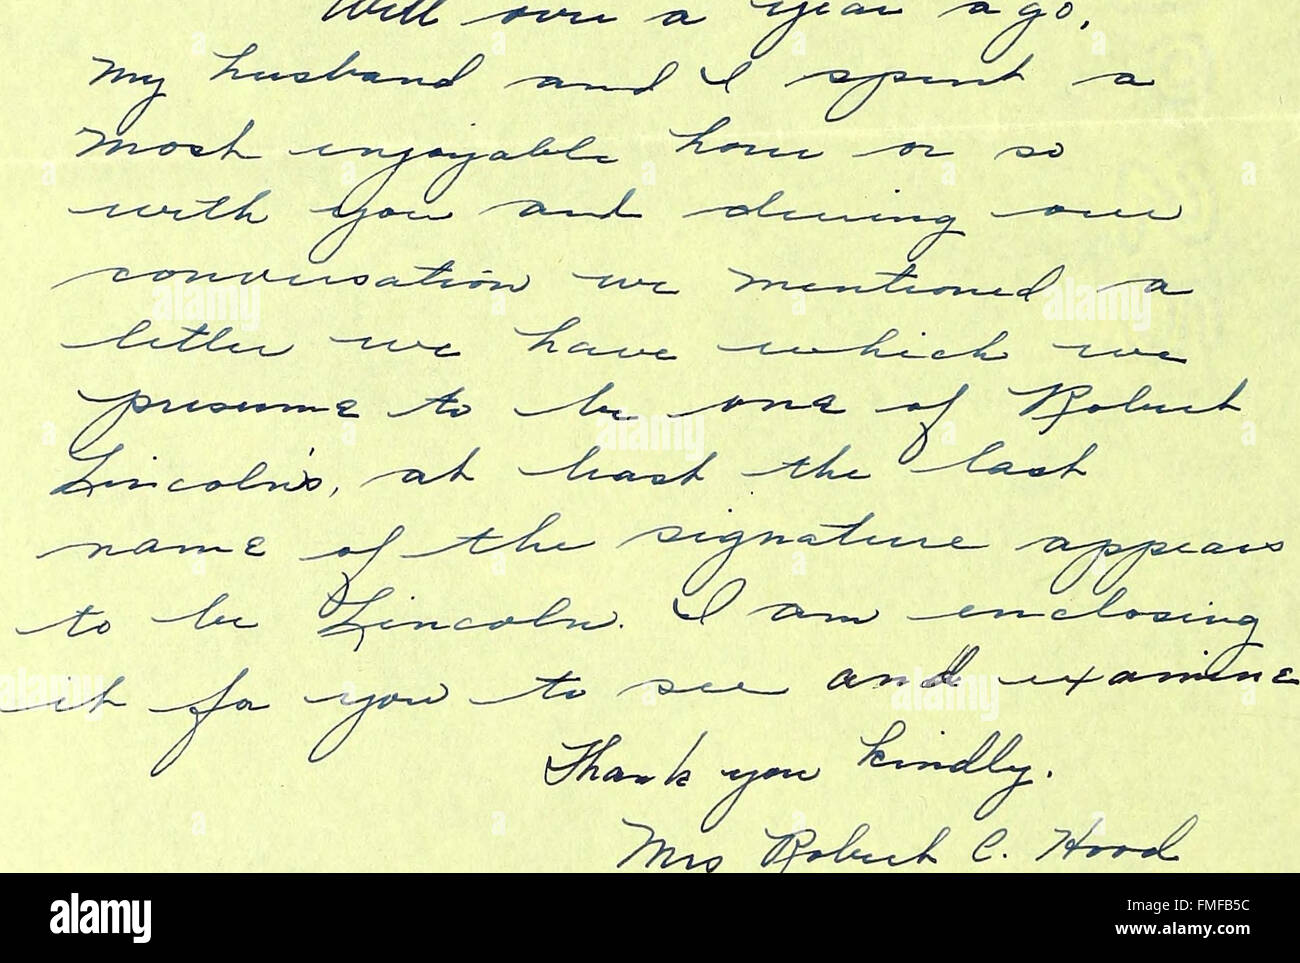 Well over a year ago,
my husband and I spent a
most enjoyable hour or so
with you and during our
conversation we mentioned a
letter we have which we
presume to be one of Robert
Lincoln's, at least the last
name of the signature appears
to be Lincoln. I am enclosing
it for you to see and examine
Thank you kindly.
Mrs Robert C. Hood
alamy
Image ID: FMFB5C
www.alamy.com